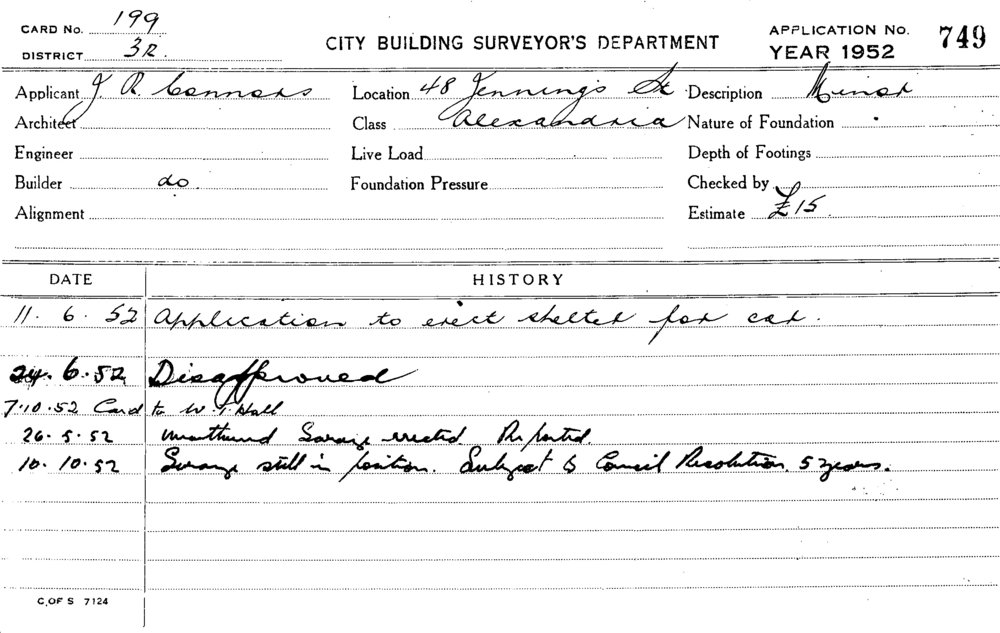 CARD No. 199
DISTRICT 3R.
CITY BUILDING SURVEYOR'S DEPARTMENT
APPLICATION No. 749
YEAR 1952
Applicant J. R. Connors Location 48 Jennings St Description Minor
Architect Class Alexandria Nature of Foundation
Engineer Live Load Depth of Footings
Builder do. Foundation Pressure Checked by
Alignment Estimate £15.
DATE HISTORY
11. 6. 52 Application to erect shelter for car.
24. 6. 52 Disapproved
7.10.52 Card to W. Hall
26.5.52 Garage erected. Reported.
10.10.52 Garage still in position. Subject to Council Resolution. 5 years.
C. OF S 7124